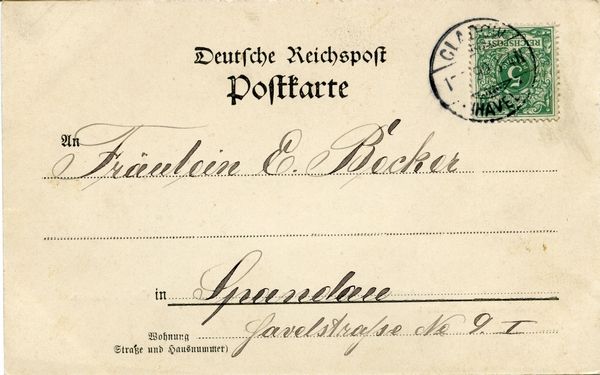 Deutsche Reichspost
Postkarte
REICHSPOST
5
(HAVEL)
An Fräulein E. Becker
in Spandau
Wohnung Havelstraße No 9. I
(Straße und Hausnummer)